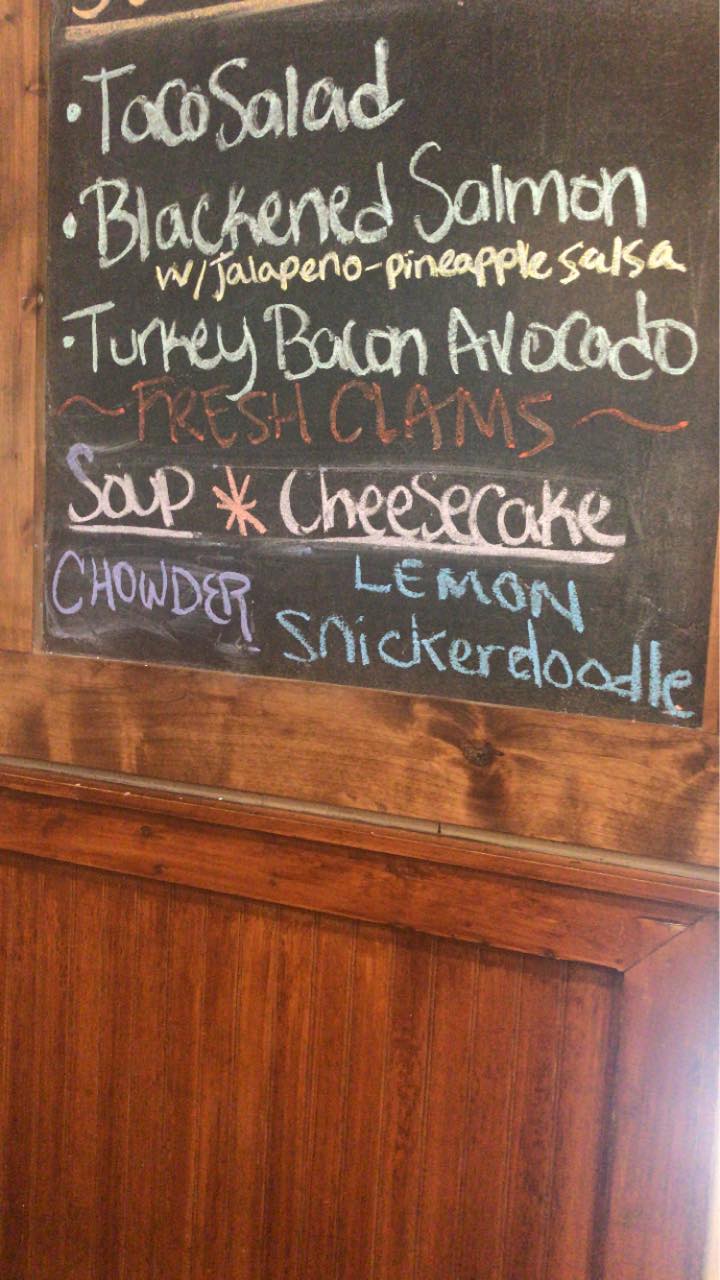 • Taco Salad
• Blackened Salmon
w/Jalapeno-pineapple salsa
• Turkey Bacon Avocado
~ FRESH CLAMS ~
Soup * Cheesecake
CHOWDER LEMON
Snickerdoodle